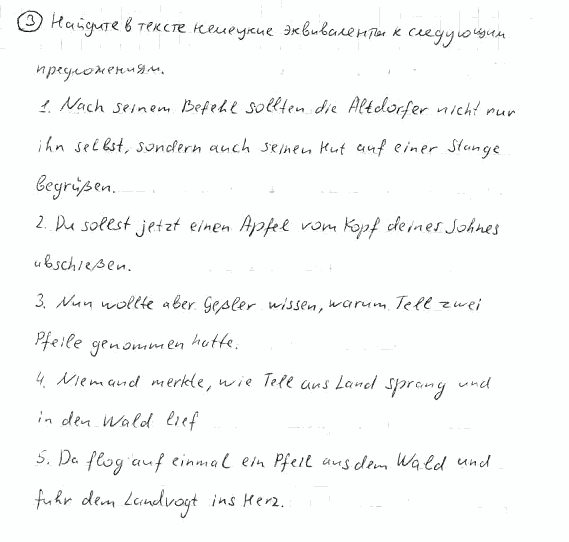 ③ Найдите в тексте немецкие эквиваленты к следующим
предложениям.
1. Nach seinem Befehl sollten die Altdorfer nicht nur
ihn selbst, sondern auch seinen Hut auf einer Stange
begrüßen.
2. Du sollst jetzt einen Apfel vom Kopf deines Sohnes
abschießen.
3. Nun wollte aber Geßler wissen, warum Tell zwei
Pfeile genommen hatte.
4. Niemand merkte, wie Tell ans Land sprang und
in den Wald lief
5. Da flog auf einmal ein Pfeil aus dem Wald und
fuhr dem Landvogt ins Herz.